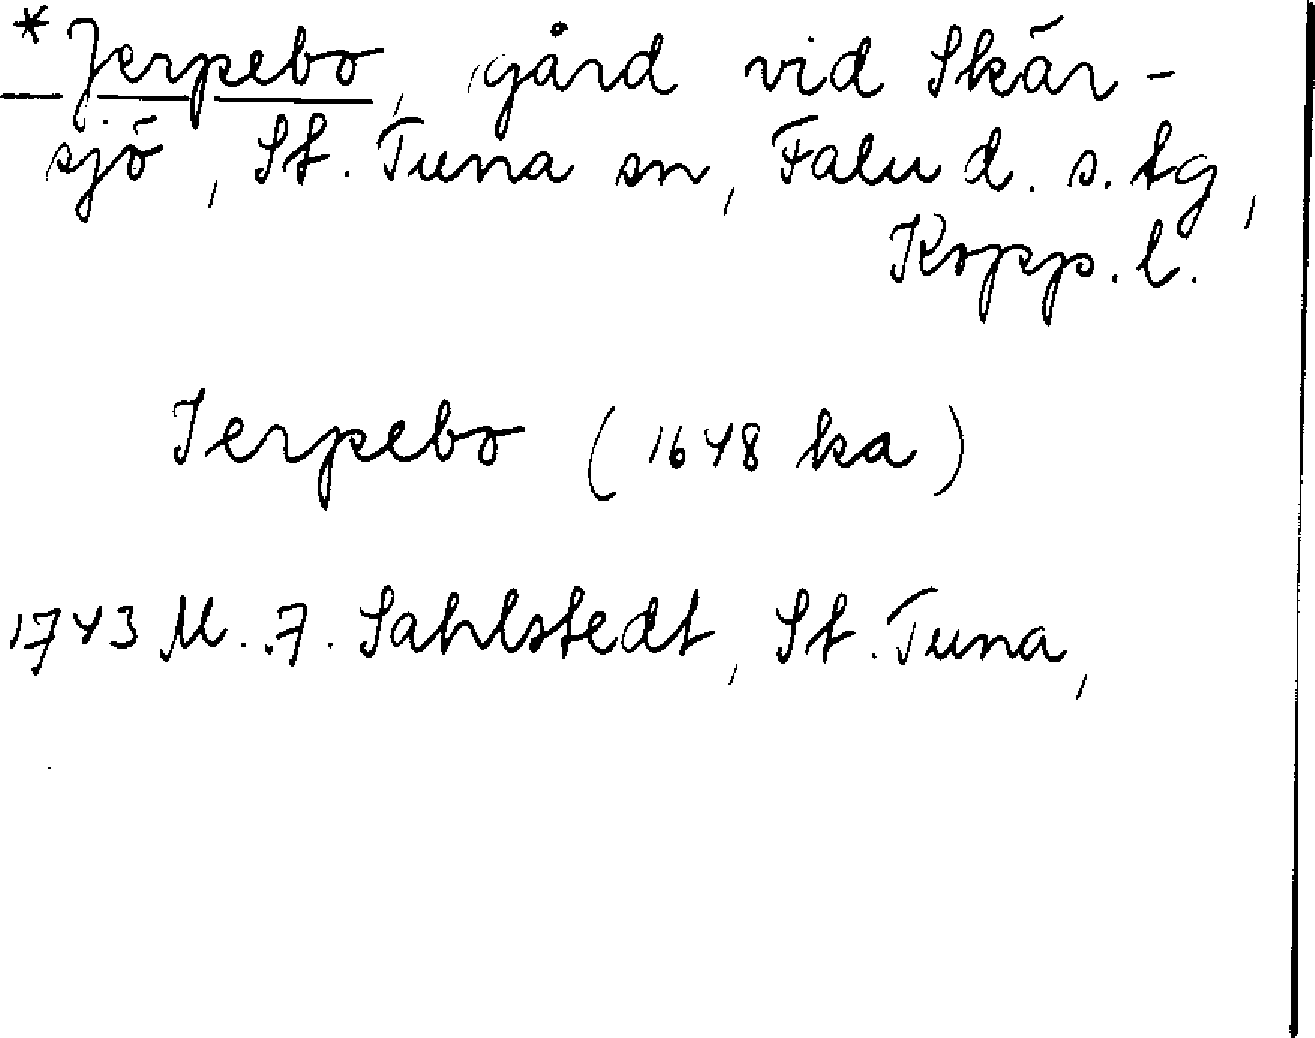 *Jerpebo, gård vid Skär-
sjö, St. Tuna sn, Falu d. s. tg,
Kopp. l.
Ierpebo (1648 ka)
1743 M. F. Sahlstedt, St. Tuna,